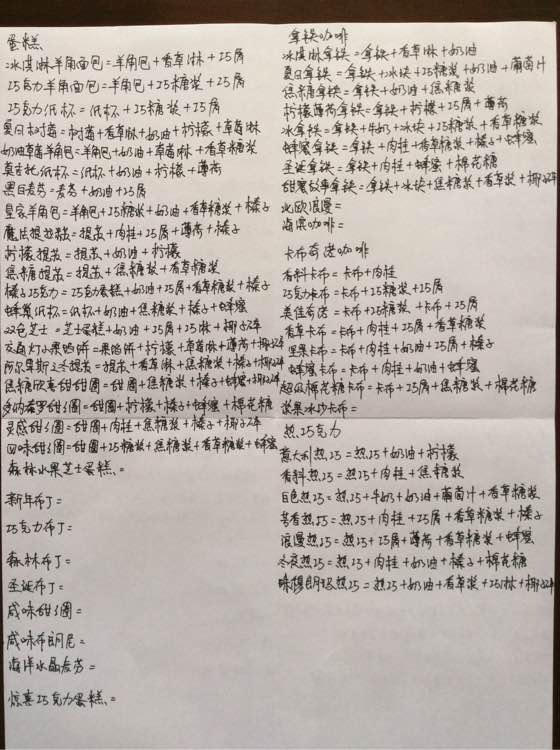 蛋糕
冰淇淋羊角面包=羊角包+香草淋+巧屑
巧克力羊角面包=羊角包+巧糖浆+巧屑
巧克力纸杯=纸杯+巧糖浆+巧屑
夏日树莓=树莓+香草淋+奶油+柠檬+草莓淋
奶油草莓羊角包=羊角包+奶油+草莓淋+香草糖浆
莫吉托纸杯=纸杯+奶油+柠檬+薄荷
黑白麦芬=麦芬+奶油+巧屑
皇家羊角包=羊角包+巧糖浆+奶油+香草糖浆+榛子
魔法提拉米苏=提苏+肉桂+巧屑+薄荷+榛子
柠檬提苏=提苏+奶油+柠檬
焦糖提苏=提苏+焦糖浆+香草糖浆
榛子巧克力=巧克蛋糕+奶油+巧屑+香草糖浆+榛子
蜂巢纸杯=纸杯+奶油+焦糖浆+榛子+蜂蜜
双色芝士=芝士蛋糕+奶油+巧屑+巧淋+椰子碎
交通灯子果馅饼=果馅饼+柠檬+草莓淋+薄荷+椰子碎
阿尔卑斯之冬提苏=提苏+香草淋+焦糖浆+榛子+椰子碎
焦糖欣喜甜甜圈=甜圈+焦糖浆+榛子+蜂蜜+椰子碎
多纳署罗甜甜圈=甜圈+柠檬+榛子+蜂蜜+棉花糖
灵感甜甜圈=甜圈+肉桂+焦糖浆+榛子+椰子碎
回味甜甜圈=甜圈+巧糖浆+焦糖浆+香草糖浆+蜂蜜
森林水果芝士蛋糕=
新年布丁=
巧克力布丁=
森林布丁=
圣诞布丁=
咸味甜甜圈=
咸味布朗尼=
海洋水晶麦芬=
惊喜巧克力蛋糕=
拿铁咖啡
冰淇淋拿铁=拿铁+香草淋+奶油
夏日拿铁=拿铁+冰块+巧糖浆+奶油+葡萄汁
焦糖拿铁=拿铁+奶油+焦糖浆
柠檬薄荷拿铁=拿铁+柠檬+巧屑+薄荷
冰拿铁=拿铁+牛奶+冰块+巧糖浆+香草糖浆
蜂蜜拿铁=拿铁+肉桂+香草糖浆+榛子+蜂蜜
圣诞拿铁=拿铁+肉桂+蜂蜜+棉花糖
甜蜜故事拿铁=拿铁+冰块+焦糖浆+香草糖浆+椰子碎
北欧浪漫=
海滨咖啡=
卡布奇诺咖啡
香料卡布=卡布+肉桂
巧克力卡布=卡布+巧糖浆+巧屑
美佳奇诺=卡布+巧糖浆+卡布+巧屑
香草卡布=卡布+肉桂+巧屑+香草糖浆
坚果卡布=卡布+肉桂+奶油+巧屑+榛子
蜂蜜卡布=卡布+肉桂+奶油+蜂蜜
超级棉花糖卡布=卡布+巧屑+焦糖浆+棉花糖
浆果冰沙卡布=
热巧克力
意大利热巧=热巧+奶油+柠檬
香料热巧=热巧+肉桂+焦糖浆
白色热巧=热巧+牛奶+奶油+葡萄汁+香草糖浆
芳香热巧=热巧+肉桂+巧屑+香草糖浆+榛子
浪漫热巧=热巧+巧屑+薄荷+香草糖浆+蜂蜜
冬夜热巧=热巧+肉桂+奶油+榛子+棉花糖
味穆朗玛热巧=热巧+奶油+香草浆+巧淋+椰子碎